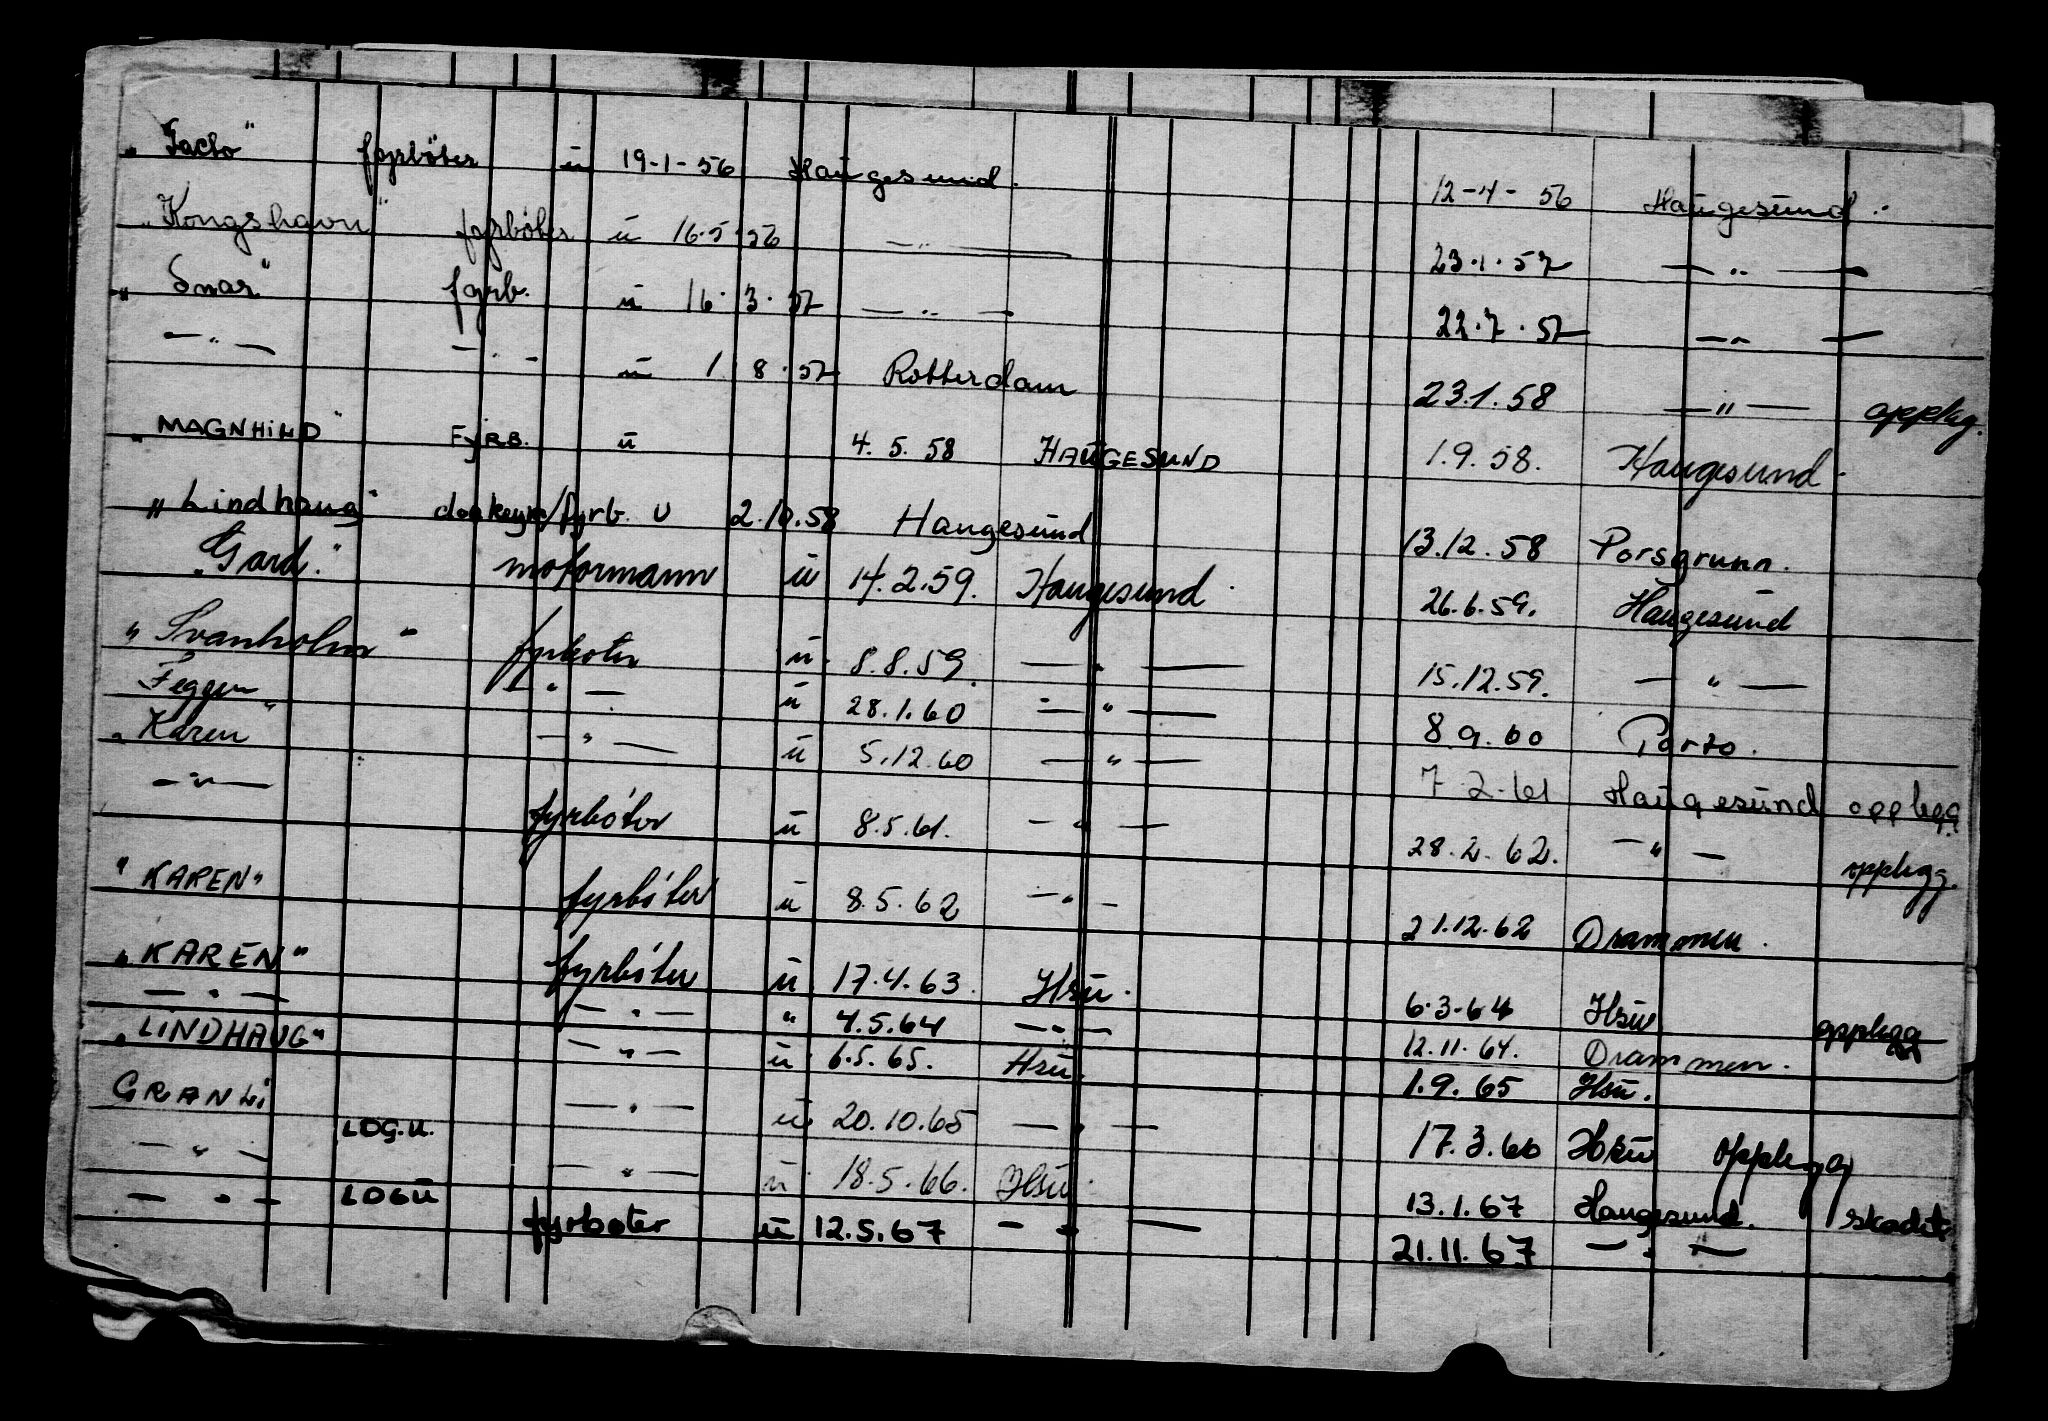 "Jacto" fyrbøter u 19-1-56 Haugesund. 12-4-56 Haugesund.
"Kongshavn" fyrbøter u 16.5.56 — " — 23.1.57 — " —
"Snar" fyrb. u 16.3.57 — " — 22.7.57 — " —
— " — — " — u 1.8.57 Rotterdam 23.1.58 — " — opplag.
"MAGNHILD" FYRB. u 4.5.58 HAUGESUND 1.9.58. Haugesund.
"Lindhaug" /fyrb. u 2.10.58 Haugesund 13.12.58 Porsgrunn.
"Gard." moformann u 14.2.59. Haugesund. 26.6.59. Haugesund
"Svanholm" fyrbøter u. 8.8.59. — " — 15.12.59. — " —
Feggen" — " — u 28.1.60 — " — 8.9.60 Porto.
"Karen" — " — u 5.12.60 — " — 7.2.61 Haugesund opplegg
— " — fyrbøter u 8.5.61. — " — 28.2.62. — " — opplegg.
"KAREN" fyrbøter u 8.5.62 — " — 21.12.62 Drammen.
"KAREN" fyrbøter u 17.4.63. Hsu. 6.3-64 Hsu opplegg
— " — — " — " 4.5.64 — " — 12.11.64. Drammen.
"LINDHAUG" — " — u 6.5.65. Hsu. 1.9.65 Hsu.
GRANLI — " — u 20.10.65 — " — 17.3.66 Hsu opplegg
— " — LOG.U. — " — u. 18.5.66. Hsu. 13.1.67 Haugesund. skadet
— " — LOGU fyrbøter u 12.5.67 — " — 21.11.67 — " —